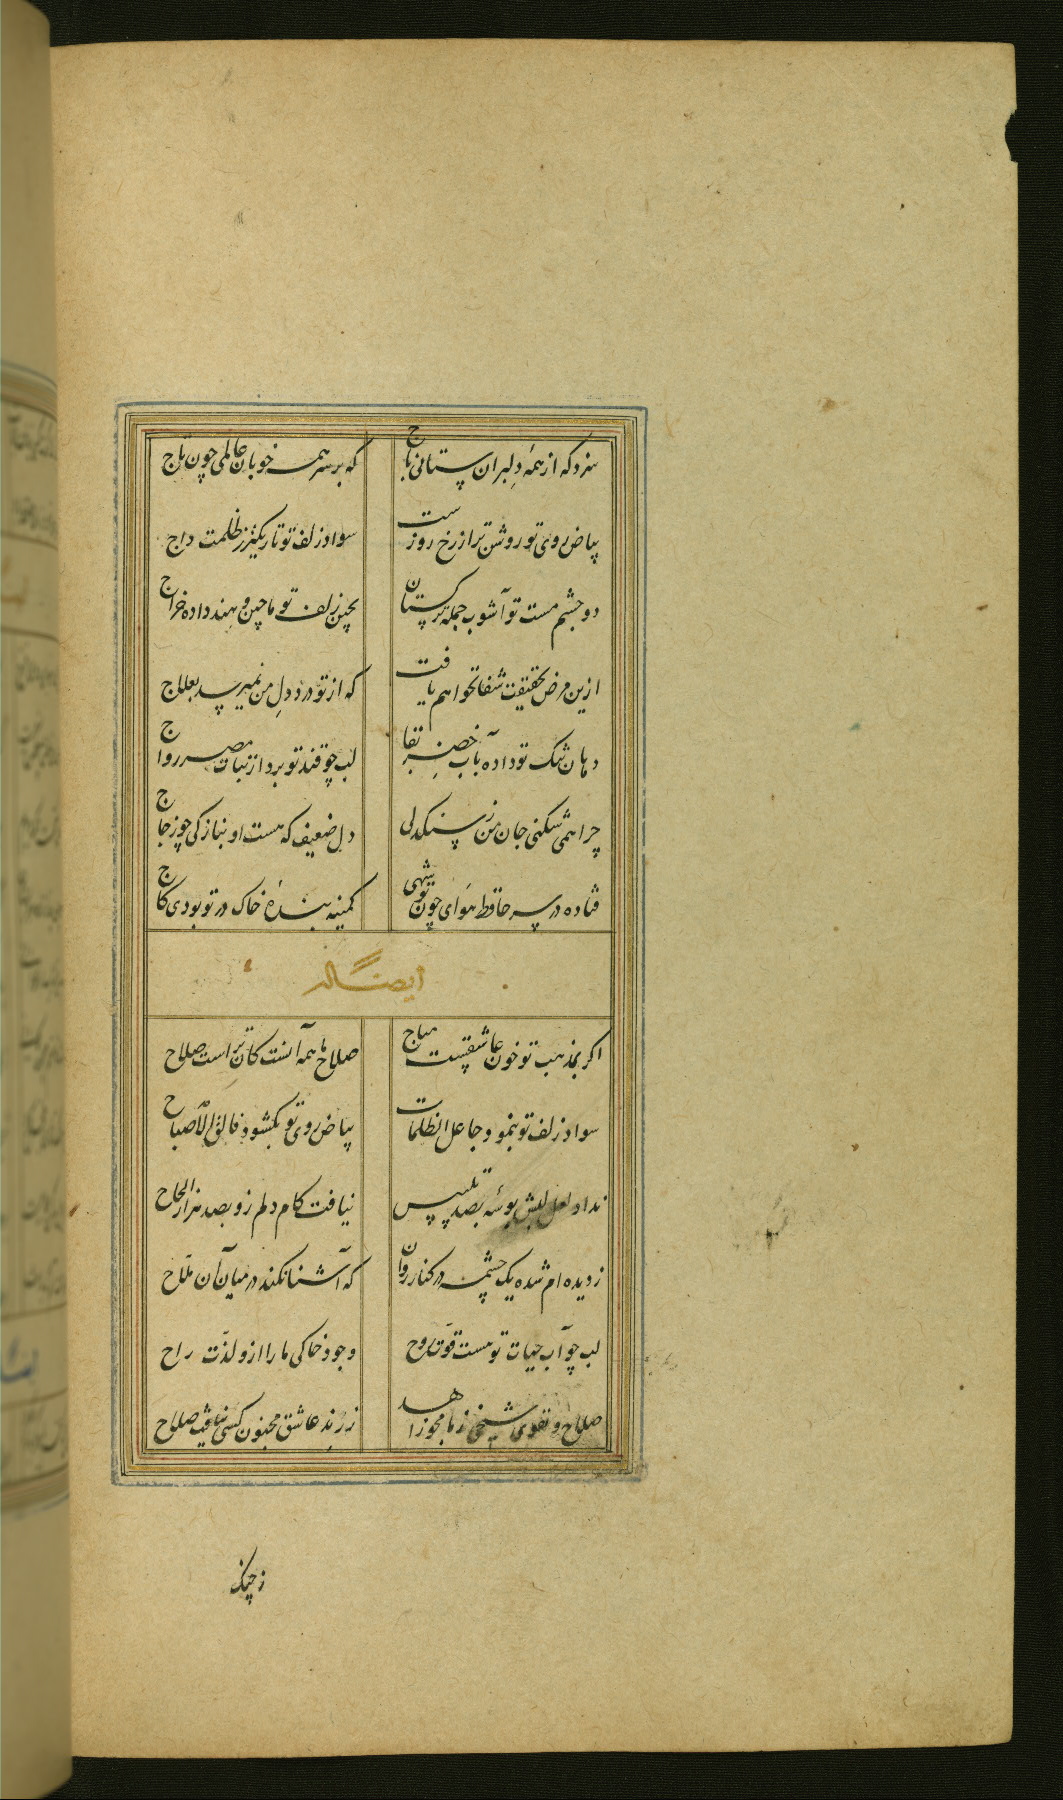 سزد که از همهٔ دلبران ستانی باج
که بر سر همه خوبان عالمی چون تاج
بیاض روی تو روشن تر از رخ روز ست
سواد زلف تو تاریکتر ز ظلمت داج
دو چشم مست تو آشوب جمله ترکستان
بچین زلف تو ماچین و هند داده خراج
ازین مرض بحقیقت شفا نخواهم یافت
که از تو درد دل من نمیرسد بعلاج
دهان تنک تو داده بآب خضر بقا
لب چو قند تو برد از نبات مصر رواج
چرا همی شکنی جان من ز سنکدلی
دل ضعیف که هست او بنازکی چو زجاج
فتاده در سر حافظ هوای چون تو شهی
کمینه بندهٔ خاک در تو بودی کاج
ایضا له
اکر بمذهب تو خون عاشقست مباح
صلاح ما همه آنست کان تراست صلاح
سواد زلف تو بنمود جاعل الظلمات
بیاض روی تو بکشود فالق الاصباح
نداد لعل لبش بوسهٔ بصد تلبیس
نیافت کام دلم زو بصد هزار الحاح
ز دیده ام شده یک چشمه در کنار روان
که آشنا نکند در میان آن ملاح
لب چو آب حیات تو هست قوت روح
وجود خاکی ما را ازو لذت راح
صلاح و تقوی شیخی ز ما مجو زاهد
ز رند عاشق مجنون کسی نیافت صلاح
ز چنک